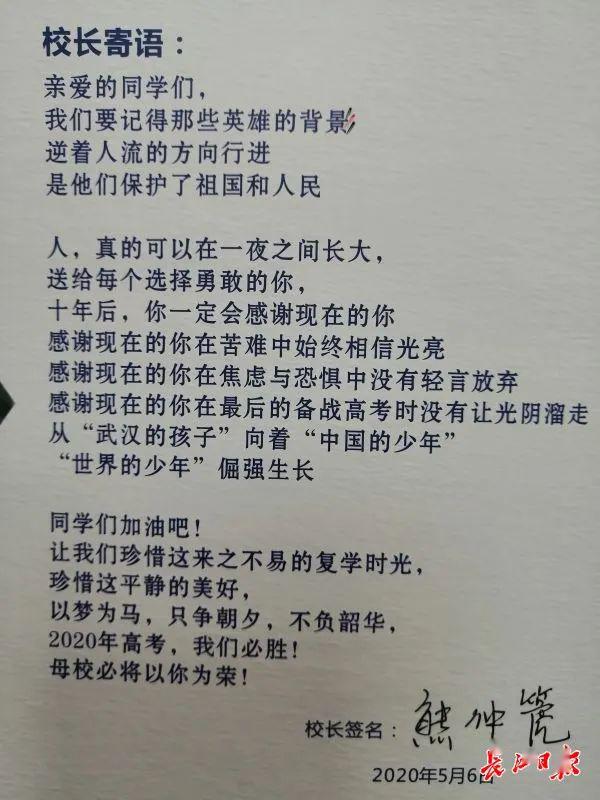 校长寄语：
亲爱的同学们，
我们要记得那些英雄的背景
逆着人流的方向行进
是他们保护了祖国和人民
人，真的可以在一夜之间长大，
送给每个选择勇敢的你，
十年后，你一定会感谢现在的你
感谢现在的你在苦难中始终相信光亮
感谢现在的你在焦虑与恐惧中没有轻言放弃
感谢现在的你在最后的备战高考时没有让光阴溜走
从“武汉的孩子”向着“中国的少年”
“世界的少年”倔强生长
同学们加油吧！
让我们珍惜这来之不易的复学时光，
珍惜这平静的美好，
以梦为马，只争朝夕，不负韶华，
2020年高考，我们必胜！
母校必将以你为荣！
校长签名：熊仲篪
2020年5月6日
长江日报